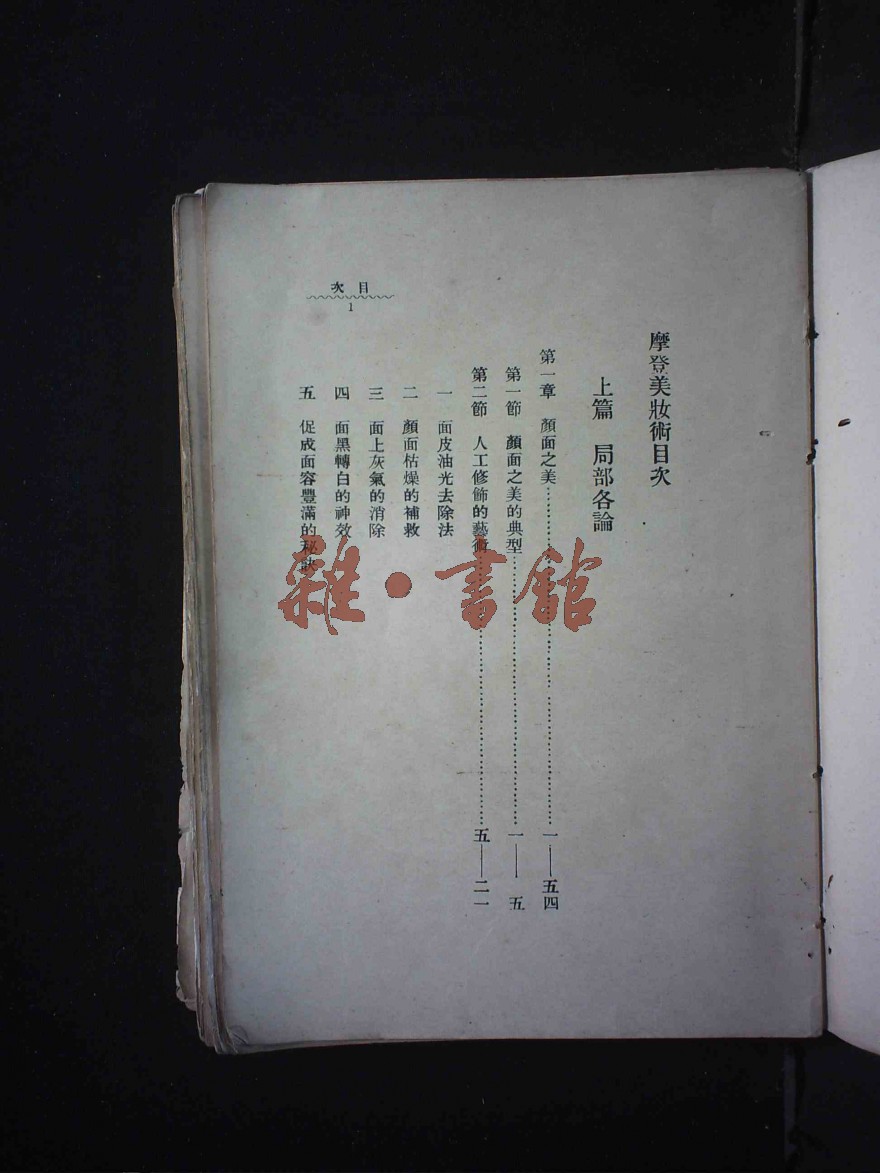 摩登美妝術目次
上篇　局部各論
第一章　顏面之美…………一——五四
第一節　顏面之美的典型…………一——五
第二節　人工修飾的藝術…………五——二一
一　面皮油光去除法
二　顏面枯燥的補救
三　面上灰氣的消除
四　面黑轉白的神效
五　促成面容豐滿的秘訣
次目
1
雜·書館